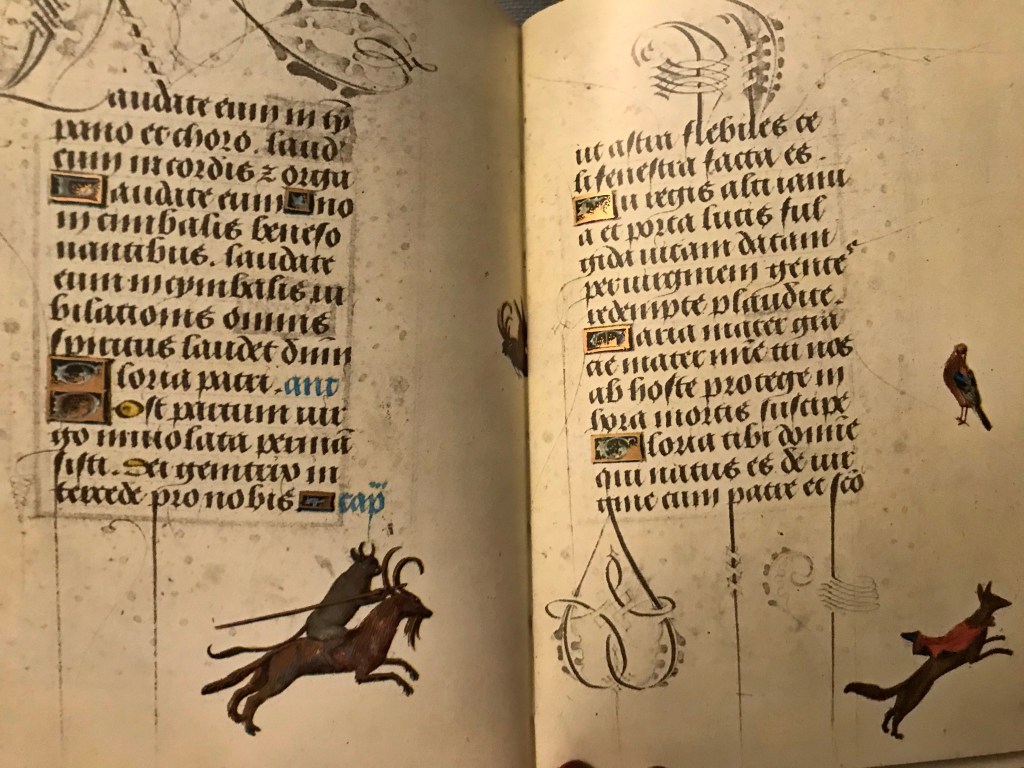 audate eum in ty
pano et choro. laud
eum in cordis ⁊ orga
audate eum no
in cimbalis beneso
nantibus. laudate
eum in cymbalis iu
bilacionis omnis
spiritus laudet dnm
loria patri. ant
st partum uir
go inuiolata permā
sisti. Dei genitrix in
tercede pro nobis cap
ut astra flebiles ce
li fenestra facta es.
u regis alti ianu
a et porta lucis ful
gida uitam datam
per uirginem gentes
redempte plaudite.
aria mater grā
ae mater mīe tu nos
ab hoste protege in
hora mortis suscipe
loria tibi domīe
qui natus es de uir
gine cum patre et scō